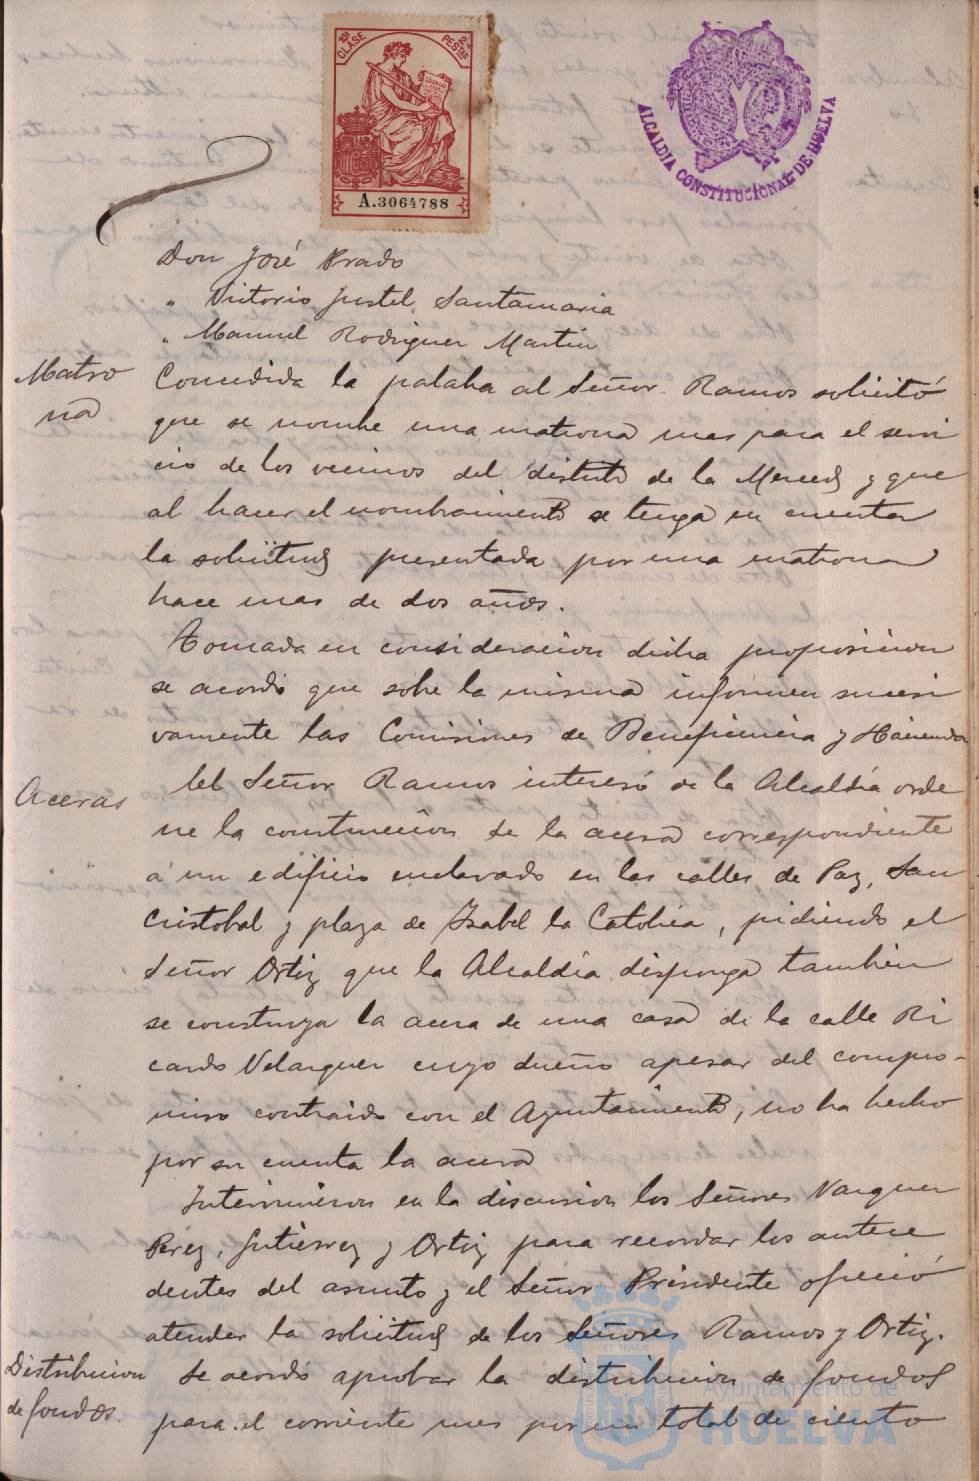 10ª CLASE
2 PESETAS
A.3064788
ALCALDIA CONSTITUCIONAL DE HUELVA
Don José Prado
" Victorio Justel Santamaria
" Manuel Rodriguez Martin
Matro
na
Concedida la palabra al Señor Ramos solicitó
que se nombre una matrona mas para el servi
cio de los vecinos del distrito de la Merced y que
al hacer el nombramiento se tenga en cuenta
la solicitud presentada por una matrona
hace mas de dos años.
Tomada en consideracion dicha proposicion
se acordó que sobre la misma informen sucesi
vamente las Comisiones de Beneficencia y Hacienda
Aceras
El Señor Ramos interesó de la Alcaldía orde
ne la construccion de la acera correspondiente
á un edificio enclavado en las calles de Paz, San
Cristobal y plaza de Isabel la Catolica, pidiendo el
Señor Ortiz que la Alcaldía disponga tambien
se construya la acera de una casa de la calle Ri
cardo Velazquez cuyo dueño apesar del compro-
miso contraido con el Ayuntamiento, no ha hecho
por su cuenta la acera
Intervinieron en la discusion los Señores Vazquez
Perez, Gutierrez y Ortiz para recordar los antece
dentes del asunto y el Señor Presidente ofreció
atender la solicitud de los Señores Ramos y Ortiz.
Distribucion
de fondos.
Se acordó aprobar la distribucion de fondos
para el corriente mes por un total de ciento
Ayuntamiento de
HUELVA